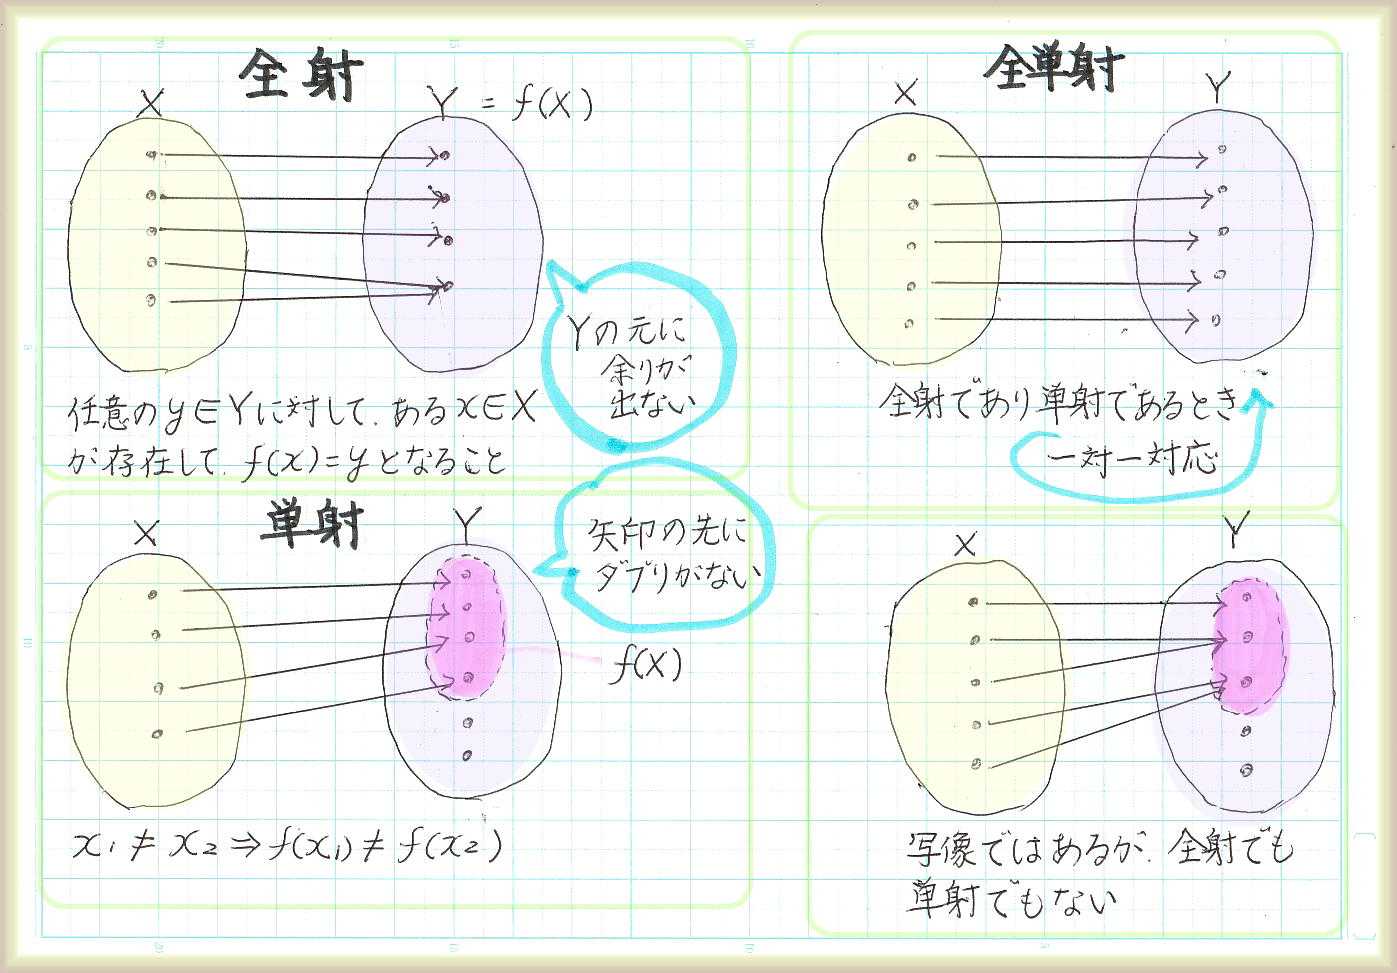 全射
X
Y = f(X)
Yの元に
余りが
出ない
任意のy∈Yに対して、ある x∈X
が存在して、f(x)=yとなること
全単射
X
Y
全射であり単射であるとき
一対一対応
単射
X
Y
矢印の先に
ダブりがない
f(X)
x₁ ≠ x₂ ⇒ f(x₁) ≠ f(x₂)
X
Y
写像ではあるが、全射でも
単射でもない